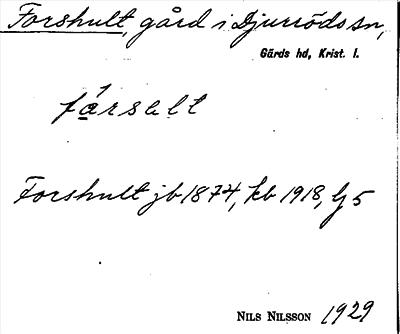 Forshult, gård i Djurröds sn,
Gärds hd, Krist. l.
fårselt
Forshult jb 1874, kb 1918, Gj 5
NILS NILSSON 1929